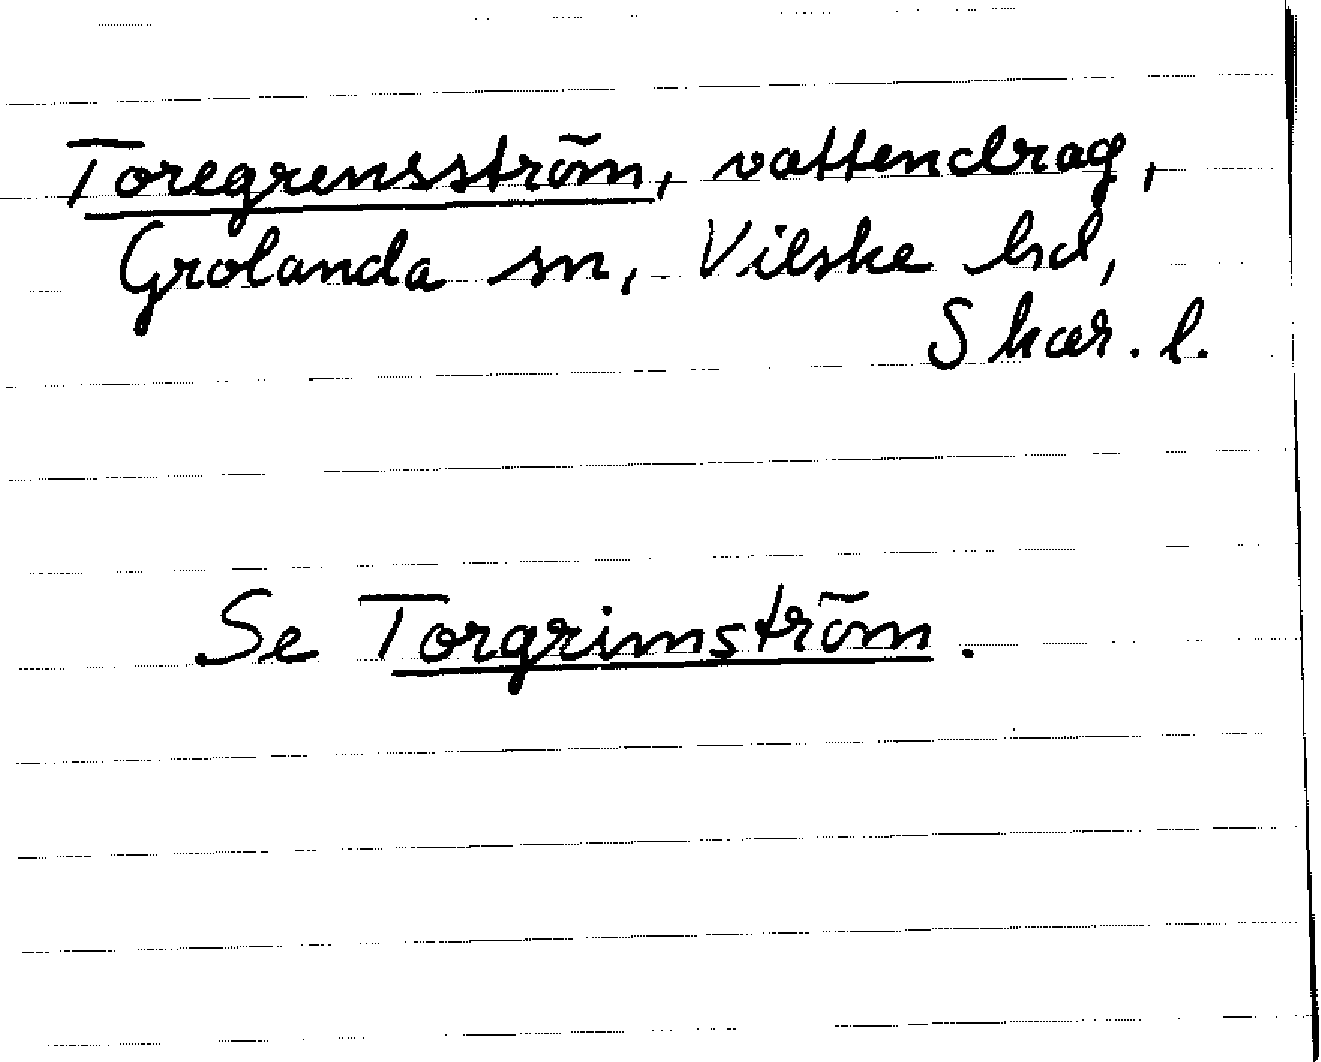 Toregrensström, vattendrag,
Grolanda sn, Vilske hd,
Skar. l.
Se Torgrimström.